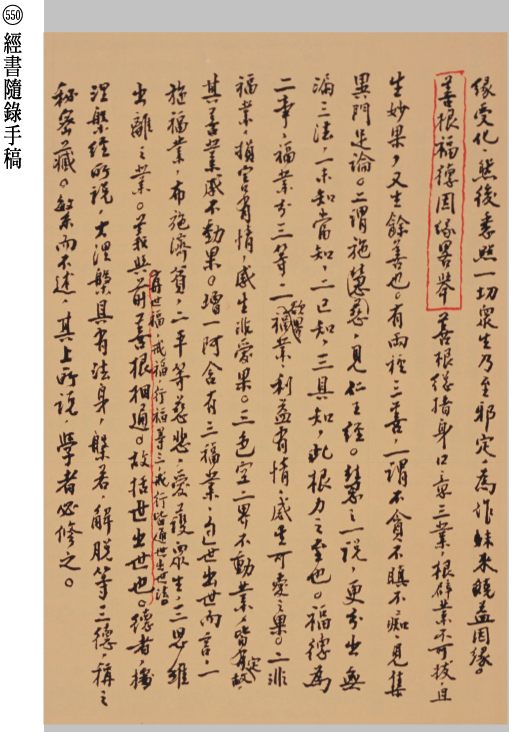 550
經書隨錄手稿
緣受化。然後悉照一切眾生乃至邪定。為作未來饒益因緣。
善根福德因緣畧举 善根總指身口意三業，根辟業不可拔，且
生妙果，又生餘善也。有兩種三善，一謂不貪不瞋不痴，見集
異門足論。二謂施慧慈，見仁王經。慧之一說，更分出無
漏三法，一未知當知，二已知，三具知，此根力之也。福德為
二事，福業分三等，一欲界福業，利益有情，感生可愛之果。二非
福業，損害有情，感生非愛果。三色空二界不動業，皆有定故，
其善業感不動果。增一阿含有三福業，世出世而言，一
施福業，布施濟貧，二平等慈悲，愛護眾生，三思維
出離之業。茲與前善根相通。故括世出世也。德者，據
有世福，戒福，行福等三，戒行皆通世出世法。
涅槃經所說，大涅槃具有法身，般若，解脫等三德，稱之
秘密藏。繁而不述，其上所說，學者必修之。